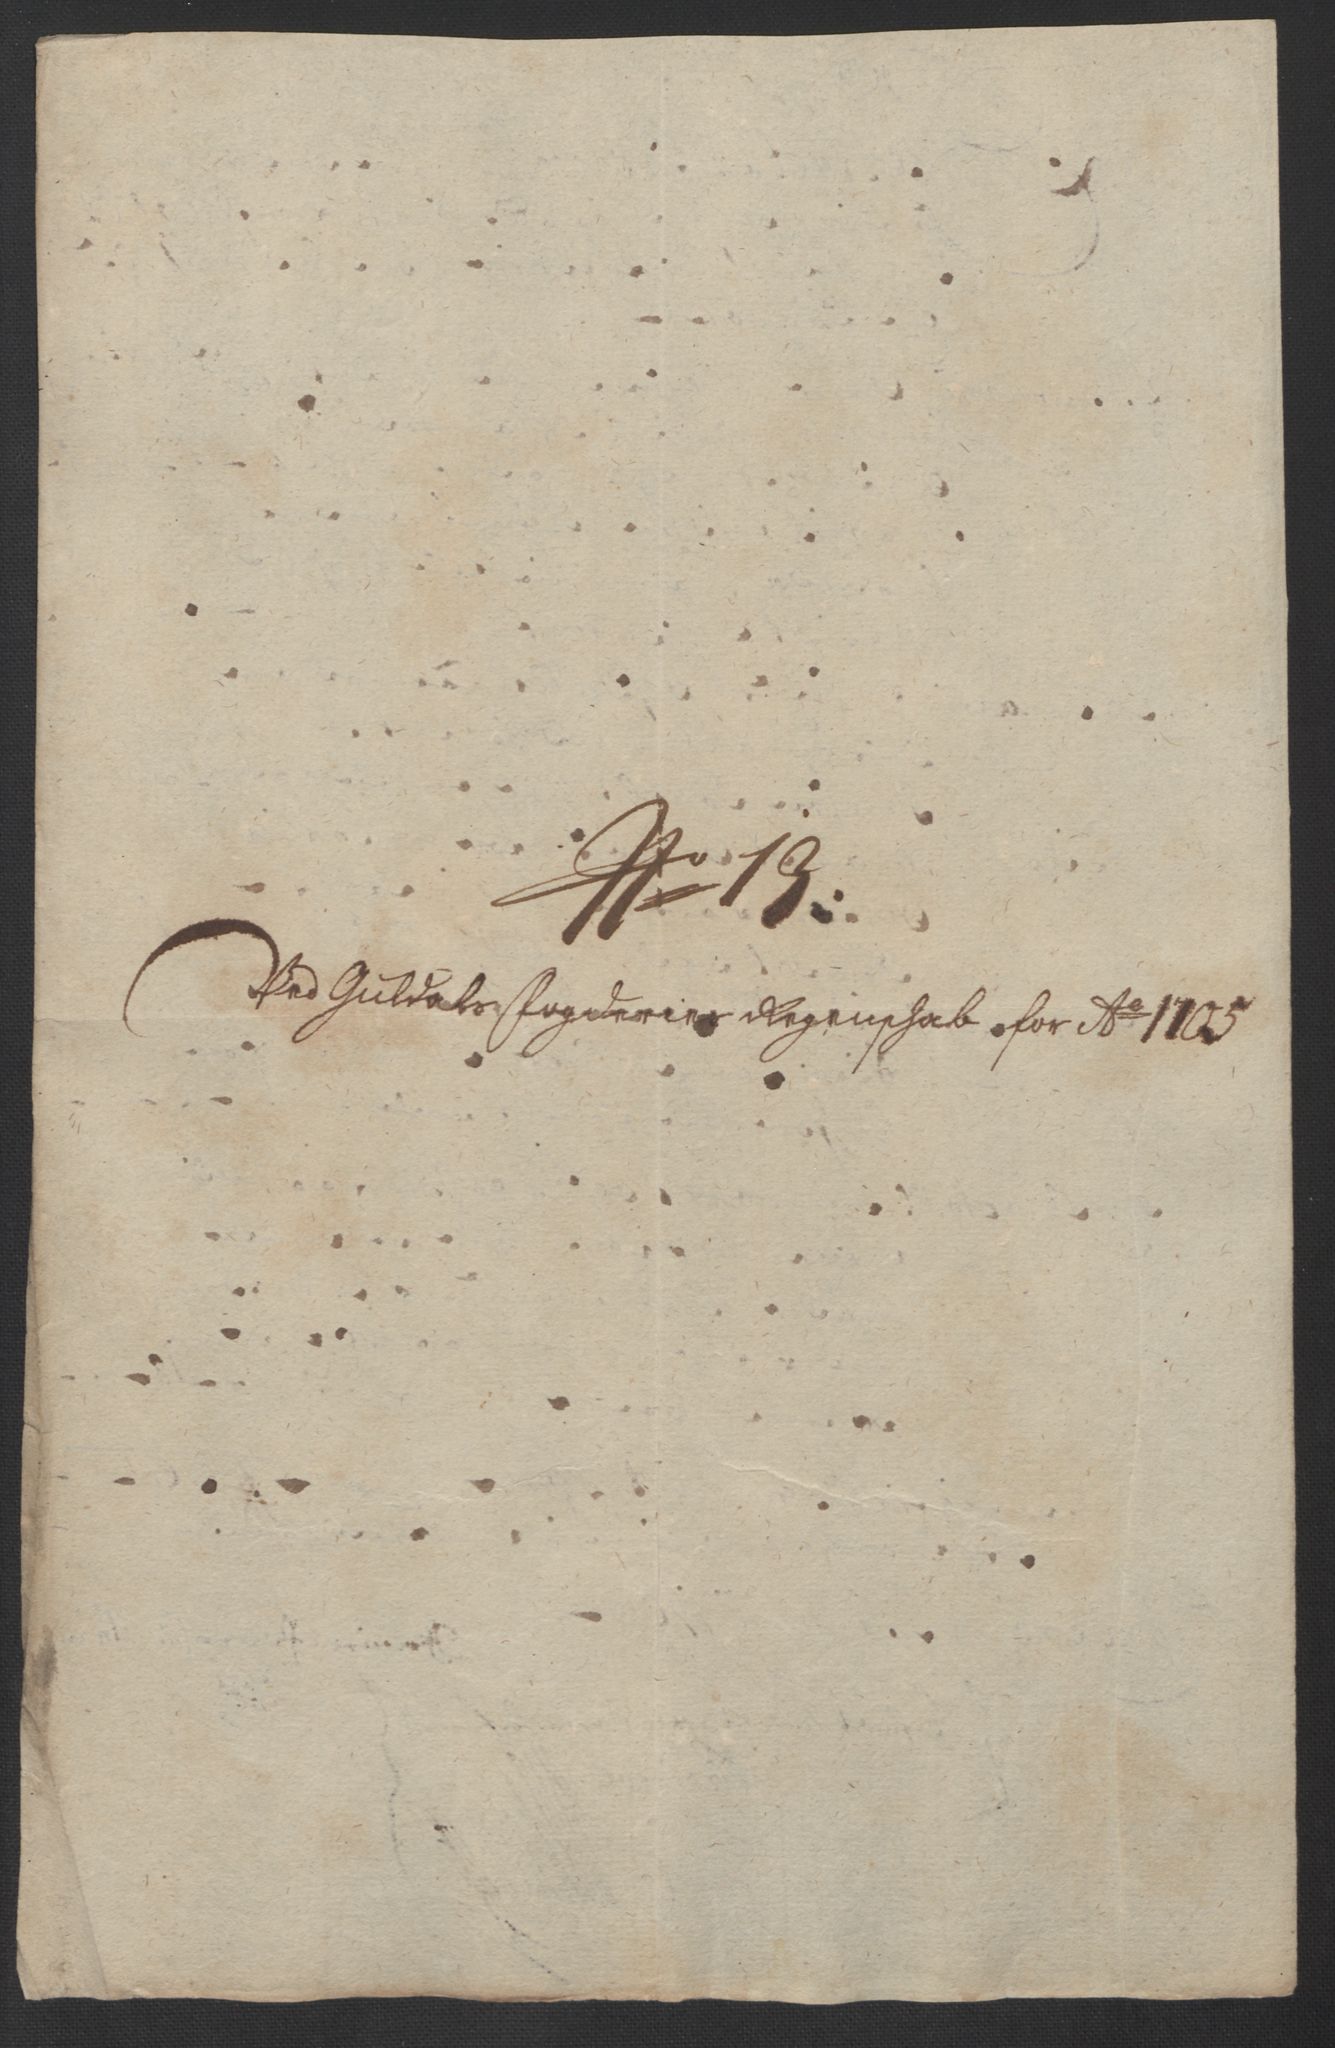 No 13.
Ved Guldals Fogderies Regenschab for Ao 1705